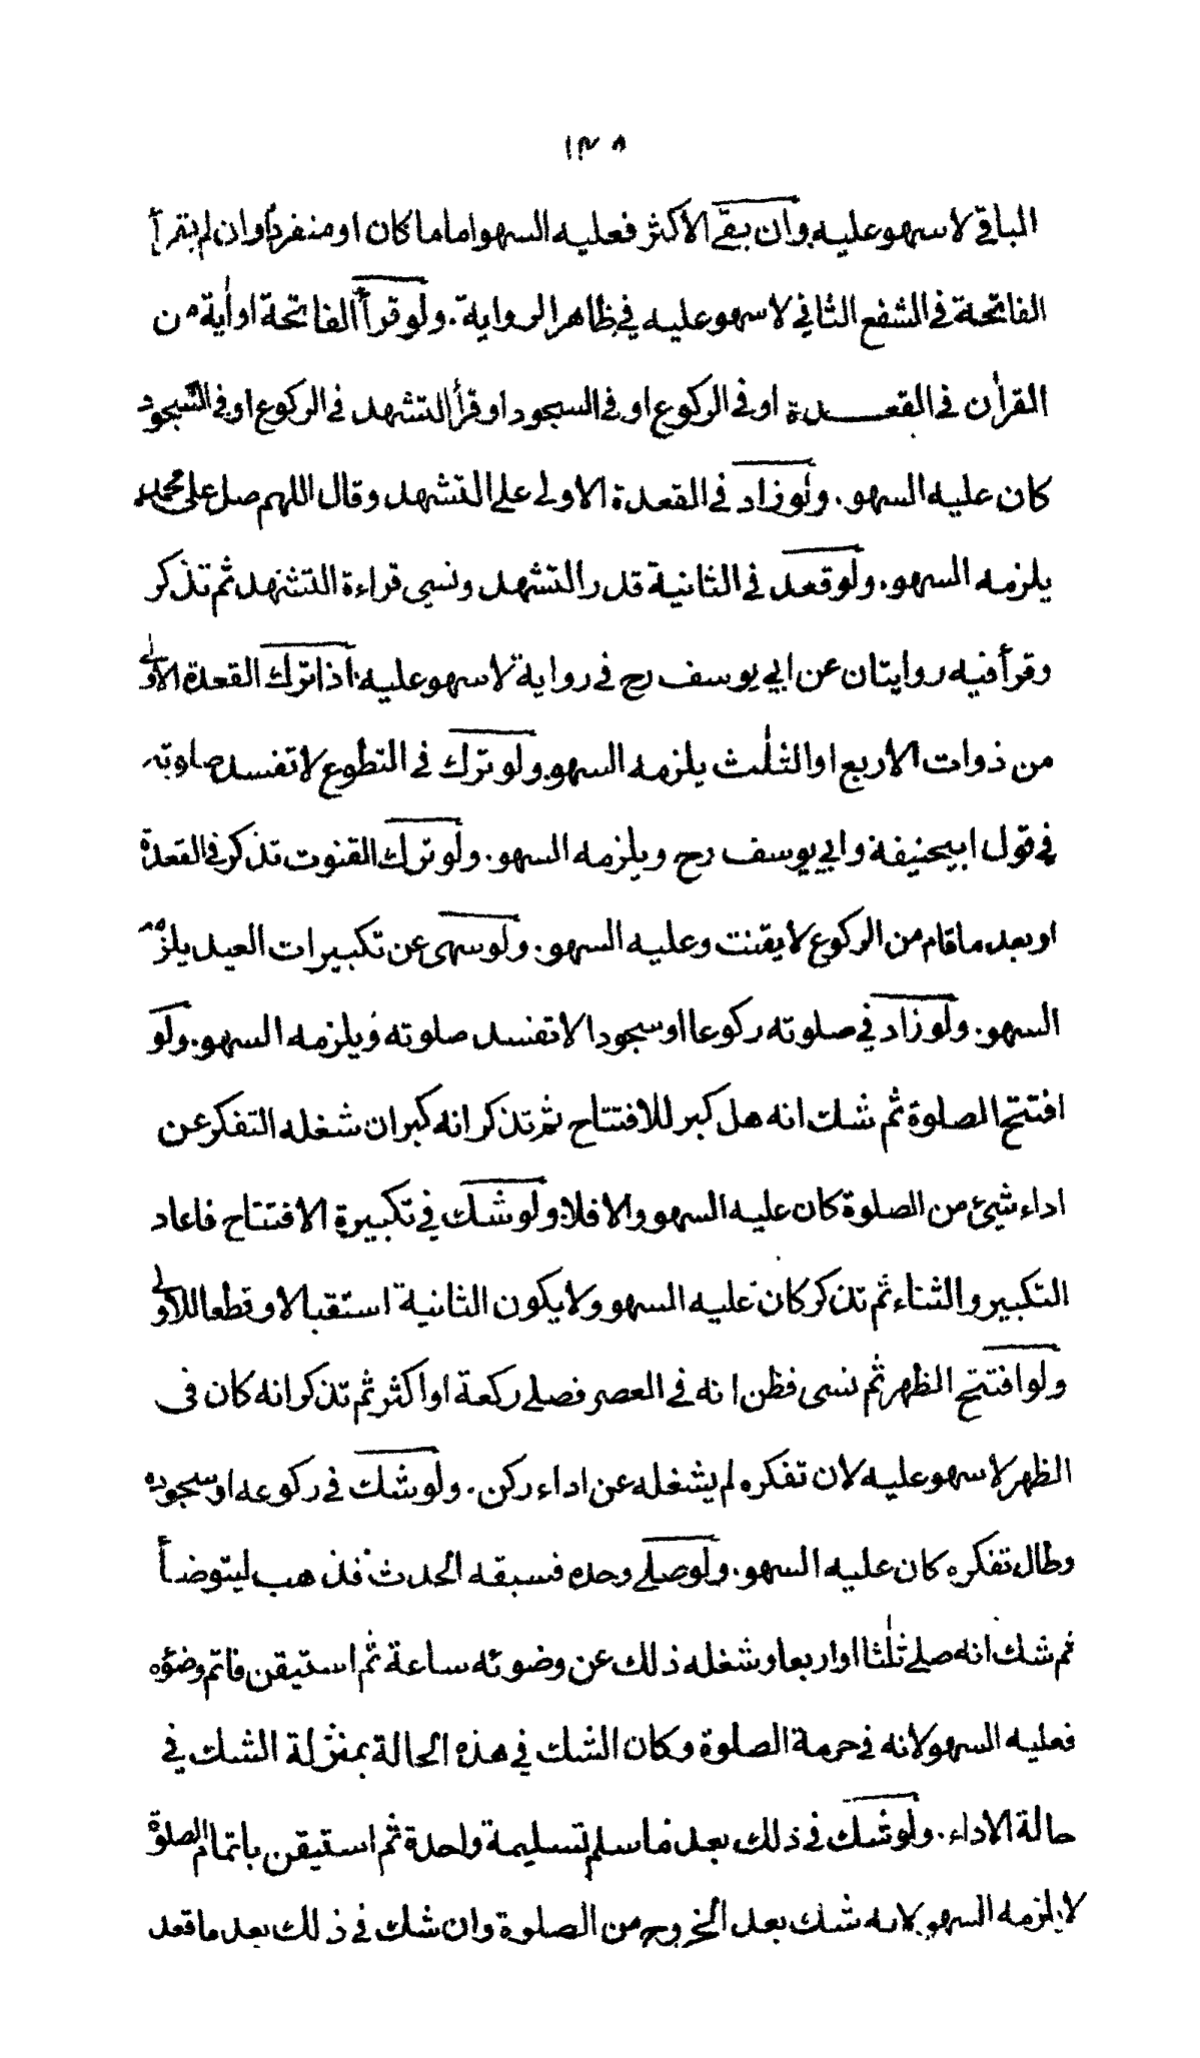 ١٣٨
الباقي لا سهو عليه وان بقي الاكثر فعليه السهو اماما كان او منفردا وان لم يقرأ
الفاتحة في الشفع الثاني لا سهو عليه في ظاهر الرواية. ولو قرأ الفاتحة او اٰية من
القراٰن في القعـــدة او في الركوع او في السجود او قرأ التشهد في الركوع او في السجود
كان عليه السهو. ولو زاد في القعدة الاولى على التشهد وقال اللهم صل على محمد
يلزمه السهو. ولو قعد في الثانية قدر التشهد ونسي قراءة التشهد ثم تذكر
وقرأ فيه روايتان عن ابي يوسف رح في رواية لا سهو عليه. اذا ترك القعدة الاولى
من ذوات الاربع او الثلٰث يلزمه السهو. ولو ترك في التطوع لا تفسد صلوته
في قول ابيحنيفة وابي يوسف رح ويلزمه السهو. ولو ترك القنوت تذكر في القعدة
او بعد ما قام من الركوع لا يقنت وعليه السهو. ولو سهى عن تكبيرات العيد يلزمه
السهو. ولو زاد في صلوته ركوعا او سجودا لا تفسد صلوته ويلزمه السهو. ولو
افتتح الصلوة ثم شك انه هل كبر للافتتاح ثم تذكر انه كبر ان شغله التفكر عن
اداء شيئ من الصلوة كان عليه السهو والا فلا. ولو شك في تكبيرة الافتتاح فاعاد
التكبير والثناء ثم تذكر كان عليه السهو ولا يكون الثانية استقبالا وقطعا للاولى
ولو افتتح الظهر ثم نسى فظن انه في العصر فصلى ركعة او اكثر ثم تذكر انه كان في
الظهر لا سهو عليه لان تفكره لم يشغله عن اداء ركن. ولو شك في ركوعه او سجوده
وطال تفكره كان عليه السهو. ولو صلى وحده فسبقه الحدث فذهب ليتوضأ
ثم شك انه صلى ثلٰثا او اربعا وشغله ذلك عن وضوئه ساعة ثم استيقن فاتم وضوؤه
فعليه السهو لانه في حرمة الصلوة وكان الشك في هذه الحالة بمنزلة الشك في
حالة الاداء. ولو شك في ذلك بعد ما سلم تسليمة واحدة ثم استيقن باتمام الصلوة
لا يلزمه السهو لانه شك بعد الخروج من الصلوة وان شك في ذلك بعد ما قعد